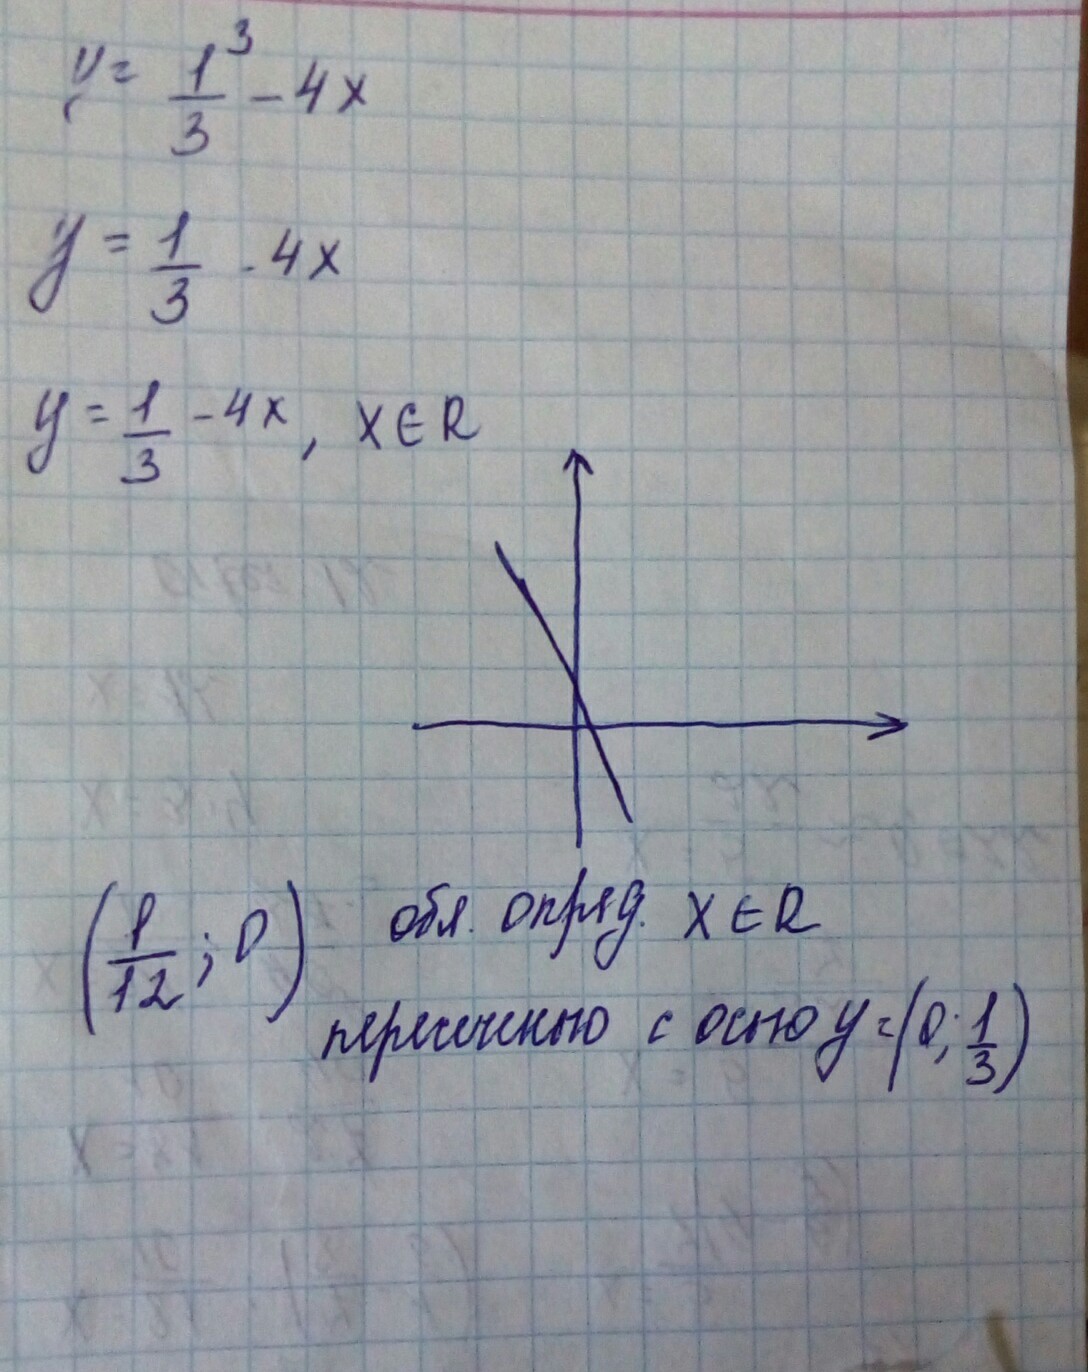 y = 1³/3 - 4x
y = 1/3 - 4x
y = 1/3 - 4x, x ∈ R
(1/12; 0) обл. опряд. x ∈ R
пересечению с осью y = (0; 1/3)